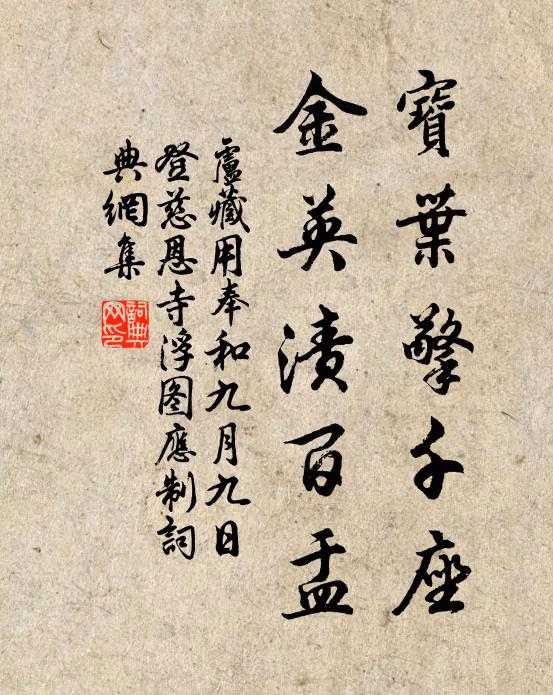 寶葉擎千座
金英漬百盂
盧藏用奉和九月九日
登慈恩寺浮图應制詞
典網集
詞典
网印